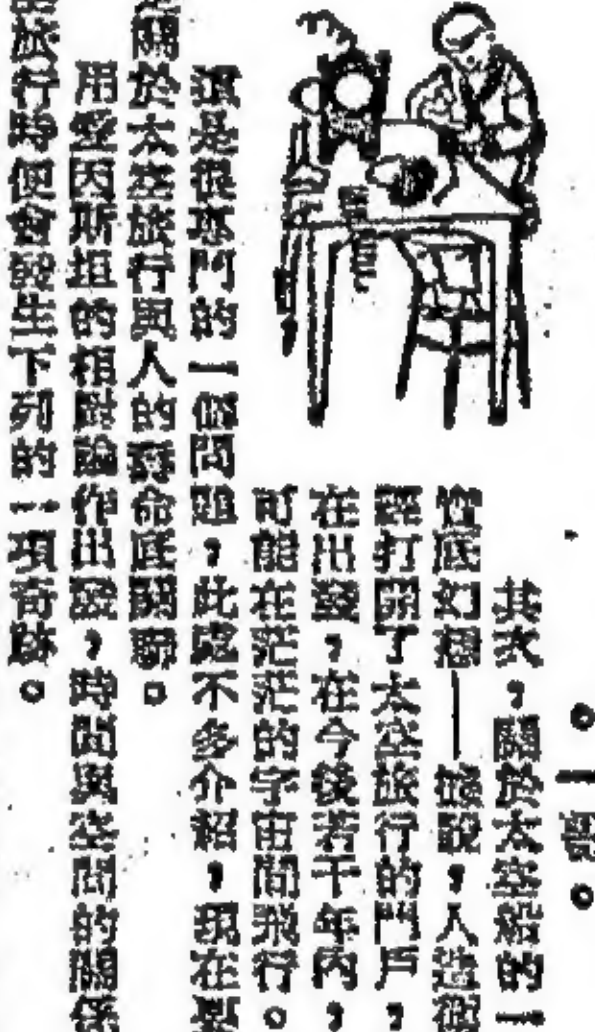 。一語。
其次，關於太空船的一
實底幻想——據說，人造衛
經打開了太空旅行的門戶，
在出發，在今後若干年內，
可能在茫茫的宇宙間飛行。
這是很專門的一個問題，此處不多介紹，現在要
關於太空旅行與人的壽命底關聯。
用愛因斯坦的相對論作出發，時間與空間的關係
旅行時便會發生下列的一項奇跡。